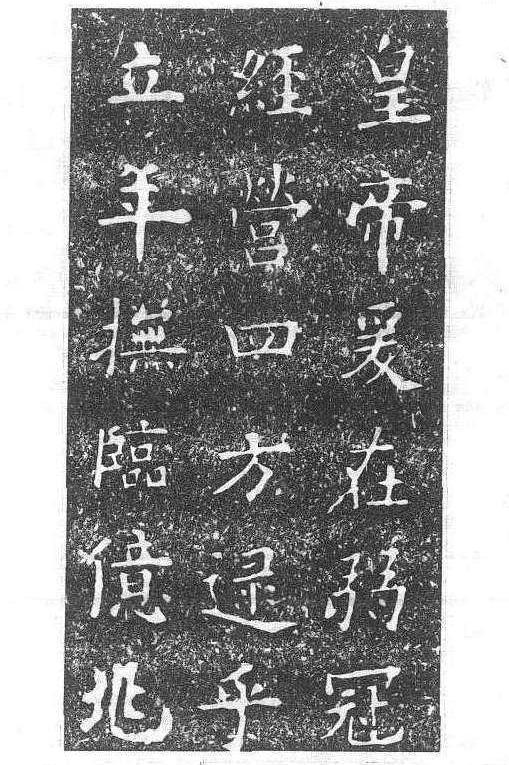 皇帝爰在弱冠
經營四方逯乎
立年撫臨億兆